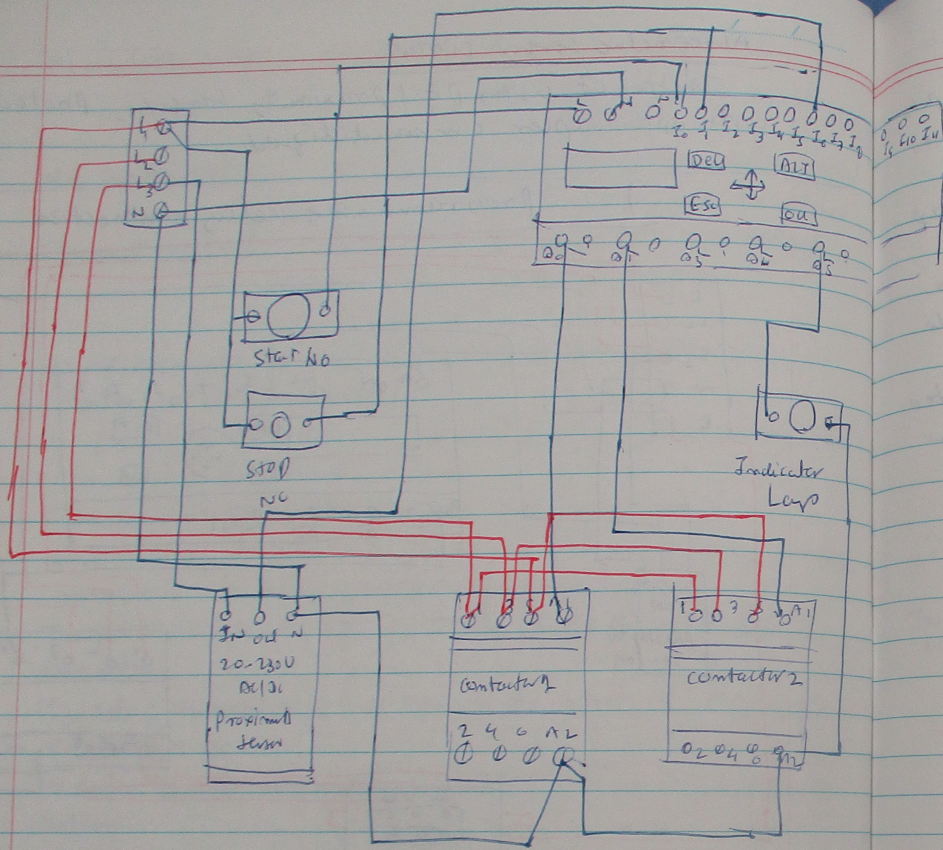 L1
L2
L3
N
I0 I1 I2 I3 I4 I5 I6 I7 I8
I9 I10 I11
DEL
ALT
ESC
OK
Start NO
STOP
NC
Indicator
Lamp
IN Out N
20-230V
AC/DC
Proximity
Sensor
A1
Contactor 1
2 4 6 A2
1 3 5 A1
Contactor 2
2 4 6 A2